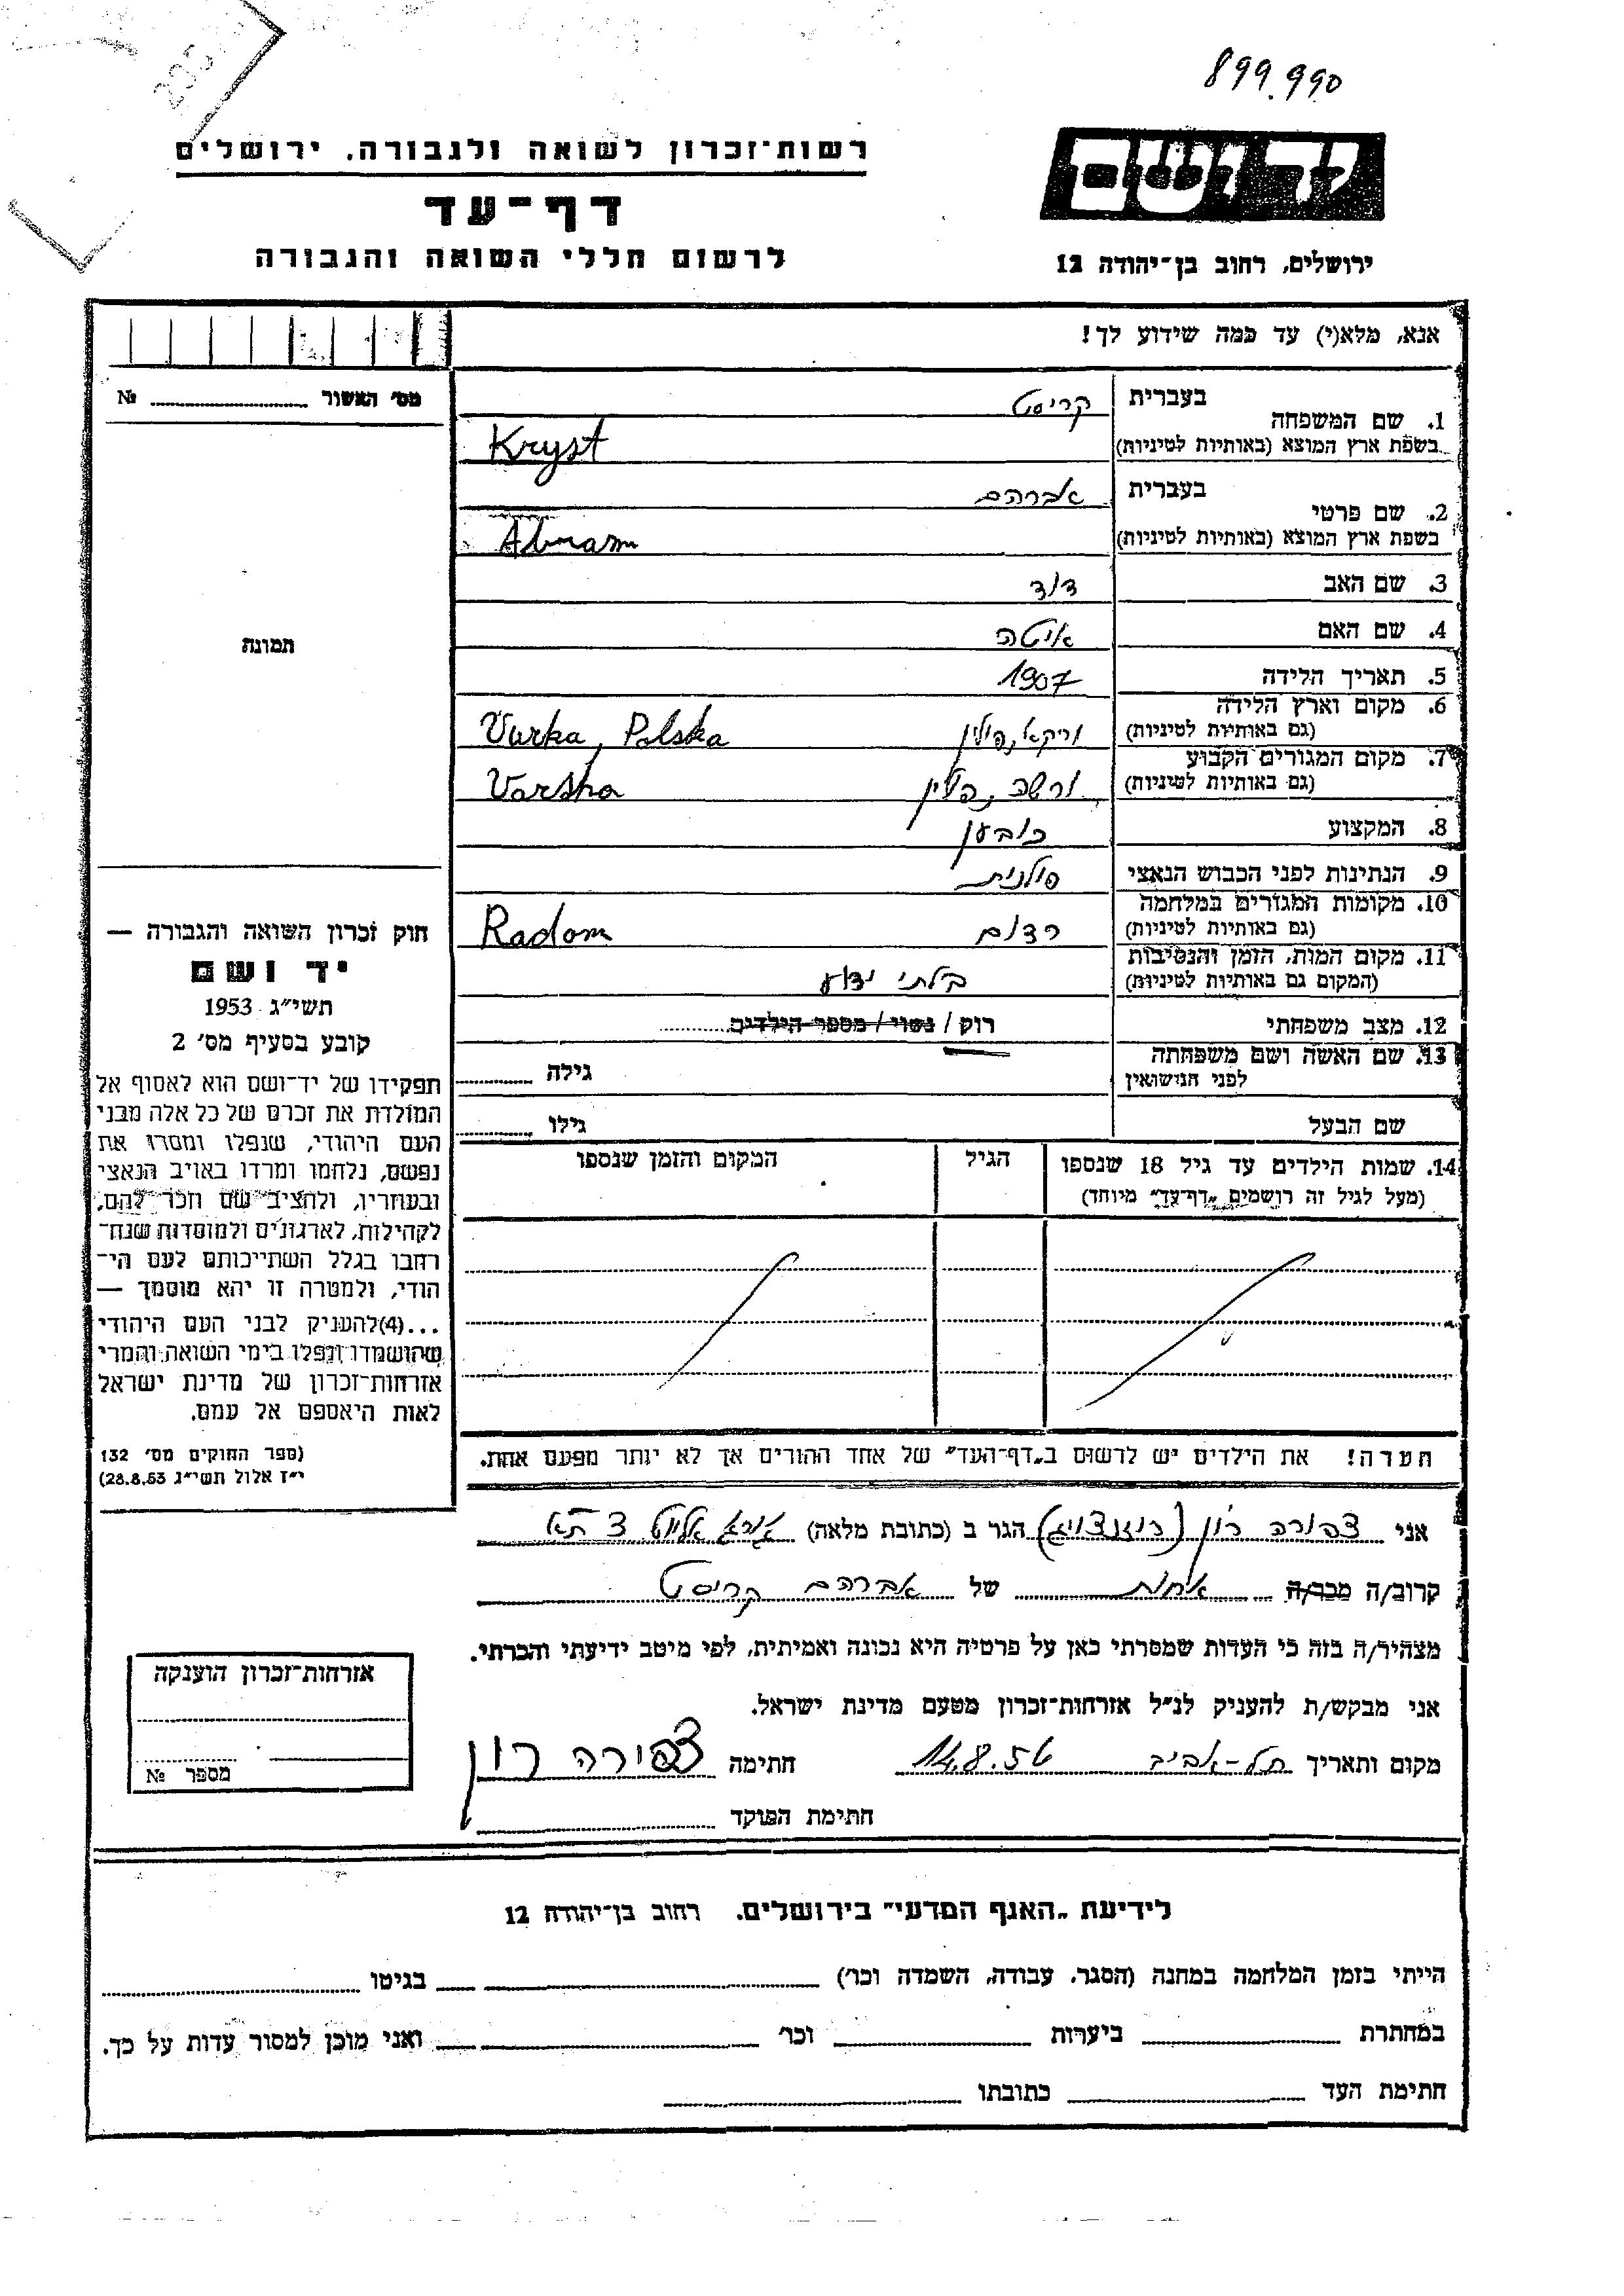 899.990
רשות־זכרון לשואה ולגבורה. ירושלים
דף־עד
לרשום חללי השואה והגבורה
יד ושם
ירושלים, רחוב בן־יהודה 12
אנא, מלא(י) עד כמה שידוע לך!
מס׳ האשור № 
תמונה
1. שם המשפחה
בעברית קריסט
בשפת ארץ המוצא (באותיות לטיניות) Kryst
2. שם פרטי
בעברית אברהם
בשפת ארץ המוצא (באותיות לטיניות) Abram
3. שם האב דוד
4. שם האם איטה
5. תאריך הלידה 1907
6. מקום וארץ הלידה
(גם באותיות לטיניות) ורקא, פולין Vurka, Polska
7. מקום המגורים הקבוע
(גם באותיות לטיניות) ורשה, פולין Varsha
8. המקצוע כובען
9. הנתינות לפני הכבוש הנאצי פולנית
10. מקומות המגורים במלחמה
(גם באותיות לטיניות) רדום Radom
11. מקום המות, הזמן והנסיבות
(המקום גם באותיות לטיניות) בלתי ידוע
12. מצב משפחתי רוק / נשוי / מספר הילדים
13. שם האשה ושם משפחתה
לפני הנושואין גילה
שם הבעל גילו
14. שמות הילדים עד גיל 18 שנספו
(מעל לגיל זה רושמים „דף־עד״ מיוחד)
הגיל
המקום והזמן שנספו
הערה! את הילדים יש לרשום ב„דף־העד״ של אחד ההורים אך לא יותר מפעם אחת.
חוק זכרון השואה והגבורה —
יד ושם
תשי״ג 1953
קובע בסעיף מס׳ 2
תפקידו של יד־ושם הוא לאסוף אל
המולדת את זכרם של כל אלה מבני
העם היהודי, שנפלו ומסרו את
נפשם, נלחמו ומרדו באויב הנאצי
ובעוזריו, ולהציב שם וזכר להם,
לקהילות, לארגונים ולמוסדות שנח־
רחבו בגלל השתייכותם לעם הי־
הודי, ולמטרה זו יהא מוסמך —
...(4)להעניק לבני העם היהודי
שהושמדו ונפלו בימי השואה והמרי
אזרחות־זכרון של מדינת ישראל
לאות היאספם אל עמם.
(ספר החוקים מס׳ 132
י״ז אלול תשי״ג 28.8.53)
אני צפורה רון (רוזנצויג) הגר ב (כתובת מלאה) ג׳ורג׳ אליוט 3 ת״א
קרוב/ה מכר/ה אחות של אברהם קריסט
מצהיר/ה בזה כי העדות שמסרתי כאן על פרטיה היא נכונה ואמיתית, לפי מיטב ידיעתי והכרתי.
אני מבקש/ת להעניק לנ״ל אזרחות־זכרון מטעם מדינת ישראל.
מקום ותאריך תל-אביב 14.8.56 חתימה צפורה רון
חתימת הפוקד
אזרחות־זכרון הוענקה
מספר №
לידיעת „האגף המדעי״ בירושלים. רחוב בן־יהודה 12
הייתי בזמן המלחמה במחנה (הסגר, עבודה, השמדה וכר׳) בגיטו
במחתרת ביערות וכר׳ ואני מוכן למסור עדות על כך.
חתימת העד כתובתו